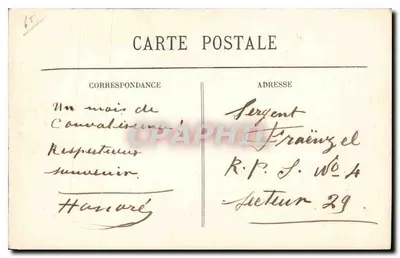 65
CARTE POSTALE
CORRESPONDANCE
ADRESSE
Un mois de
Convalescence!
Respectueux
souvenir.
Honoré
Sergent
Fraënzel
R. P. S. No 4
Secteur 29.
CPAPHIL